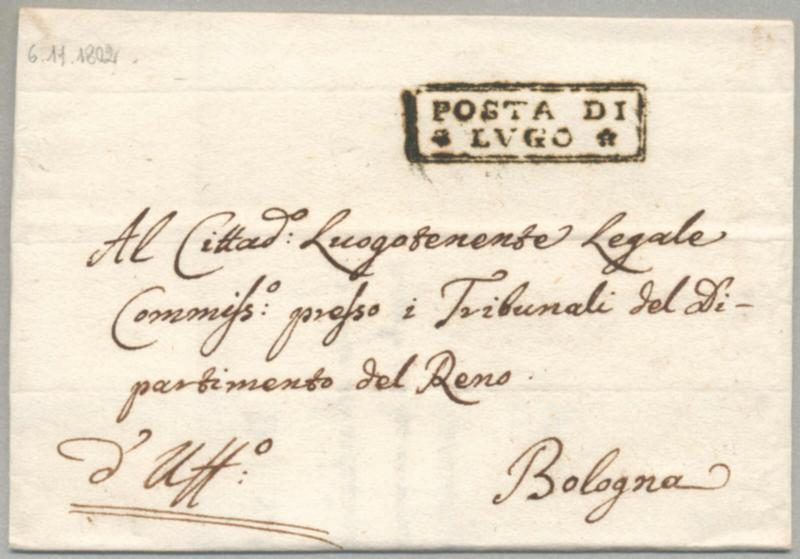 6.11.1802.
POSTA DI
* LVGO *
Al Cittad:º Luogotenente Legale
Commiſs:º preſso i Tribunali del Di-
partimento del Reno.
d' Uff:º
Bologna